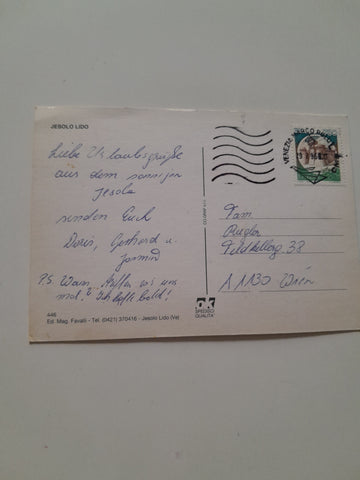 JESOLO LIDO
Liebe Urlaubsgrüße
aus dem sonnigen
Jesolo
senden Euch
Doris, Gerhard u.
Jasmin
P.S. Wann treffen wir uns
mal? Ich hoffe bald!
446
Ed. Mag. Favalli - Tel. (0421) 370416 - Jesolo Lido (Ve)
SPEDISCI
QUALITA'
VENEZIA
Fam.
38
A 1130 Wien